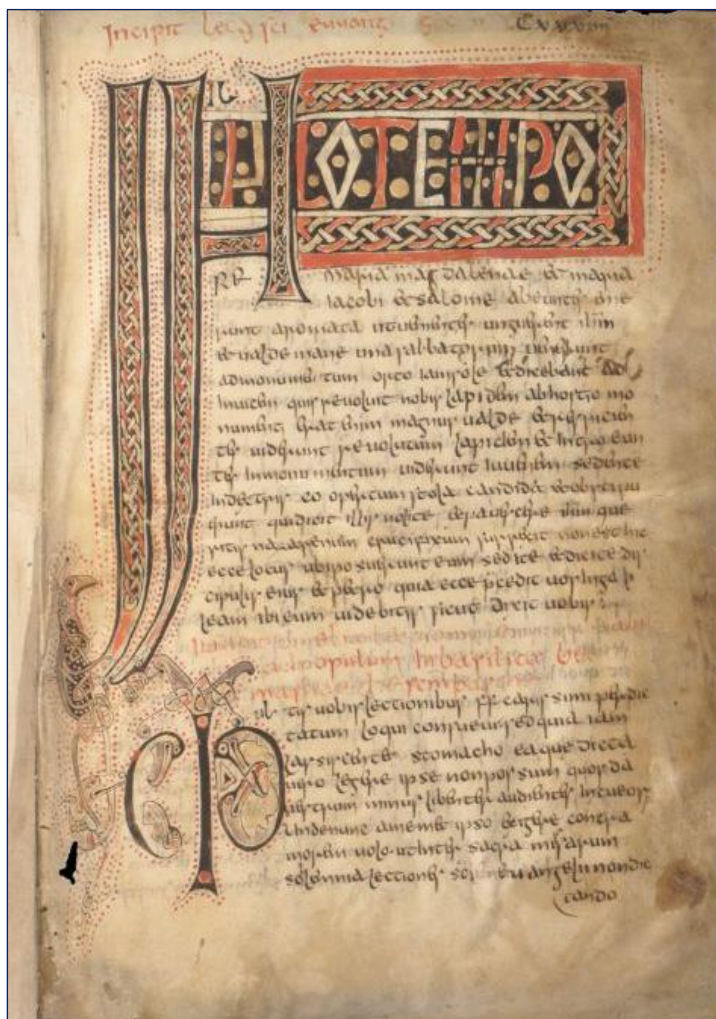 Incipit lec sci euang
IN ILLO TEMPO
RE maria magdalenae & maria
iacobi & salome abeuntes eme
runt aromata ut uenientes unguerent ihm
& ualde mane una sabbatorum ueniunt
ad monumentum orto iam sole & dicebant ad
inuicem quis reuoluit nobis lapidem ab hostio mo
numenti erat enim magnus ualde & respicien
tes uiderunt reuolutum lapidem & introeun
tes in monumentum uiderunt iuuenem sedente
in dextris coopertum stola candida & obstipu
erunt qui dicit illis nolite expauescere ihm que
ritis nazarenum crucifixum surrexit non est hic
ecce locus ubi posuerunt eum sed ite & dicite dis
cipulis eius & petro quia ecce precedit uos in gali
leam ibi eum uidebitis sicut dixit uobis
populum in basilica be
mariae
Mul tis uobis lectionibus fr cares sum per dic
tatum loqui consueui sed quia iam
lassescente stomacho ea que dicta
uero legere ipse non possum quosda
uestrum minus libenter audientes intueor
unde nunc a me&ipso exigere contra
morem uolo ut inter sacra misarum
solemnia lectionem sci euangelii non dic
tando